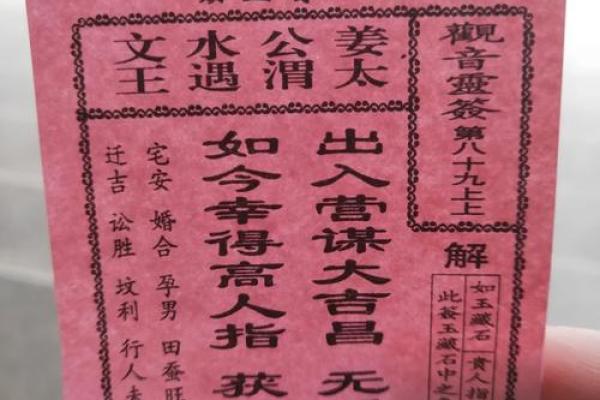 觀音靈簽第八十九上上
解
如玉藏石 貴人指
此簽玉藏石中之
姜太
公渭
水遇
文王
出入营谋大吉昌 无
如今幸得高人指 获
宅安 婚合 孕男 田蚕旺
迁吉 讼胜 坟利 行人